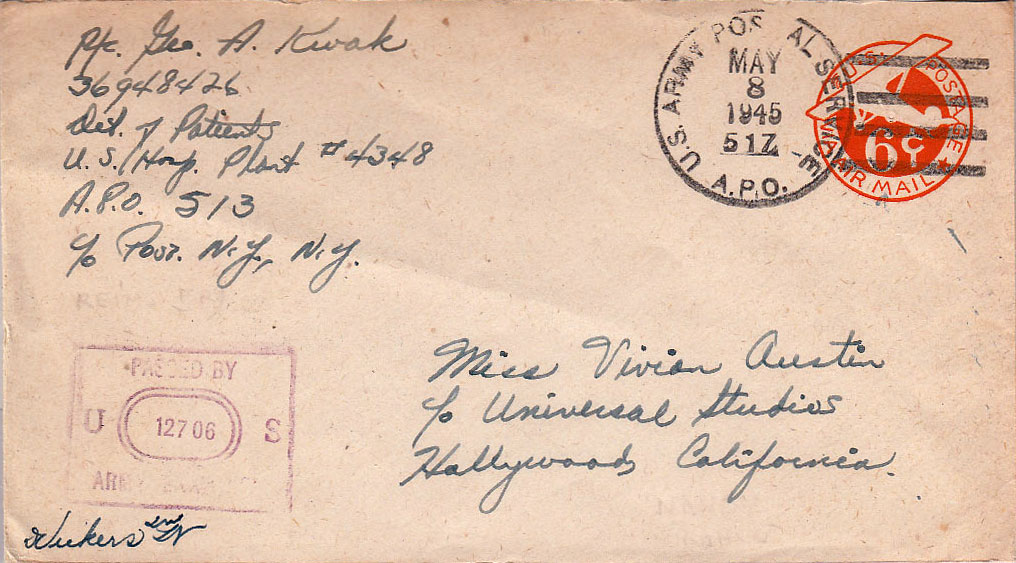 Pfc. Geo. A. Kwak
36948426
Det. of Patients
U.S. Hosp. Plant # 4348
A.P.O. 513
c/o Post. N.Y., N.Y.
U.S. ARMY POSTAL SERVICE
MAY
8
1945
517
A.P.O.
U.S. POSTAGE
6¢
AIR MAIL
Miss Vivian Austin
c/o Universal Studios
Hollywoods California.
PASSED BY
U 12706 S
ARMY